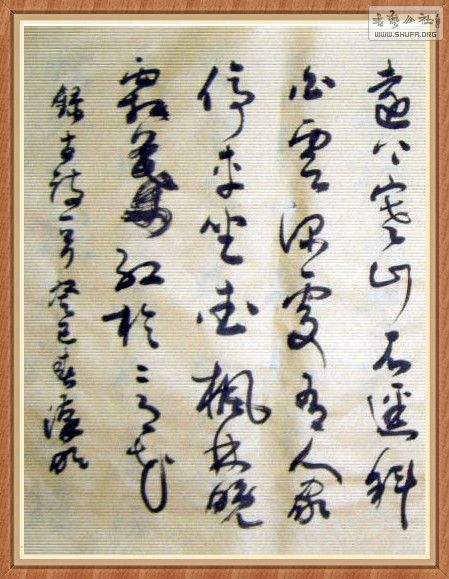 遠上寒山石逕斜
白雲深處有人家
停車坐愛楓林晚
霜葉紅於二月花
錄古詩一首癸巳春
书艺公社
WWW.SHUFA.ORG